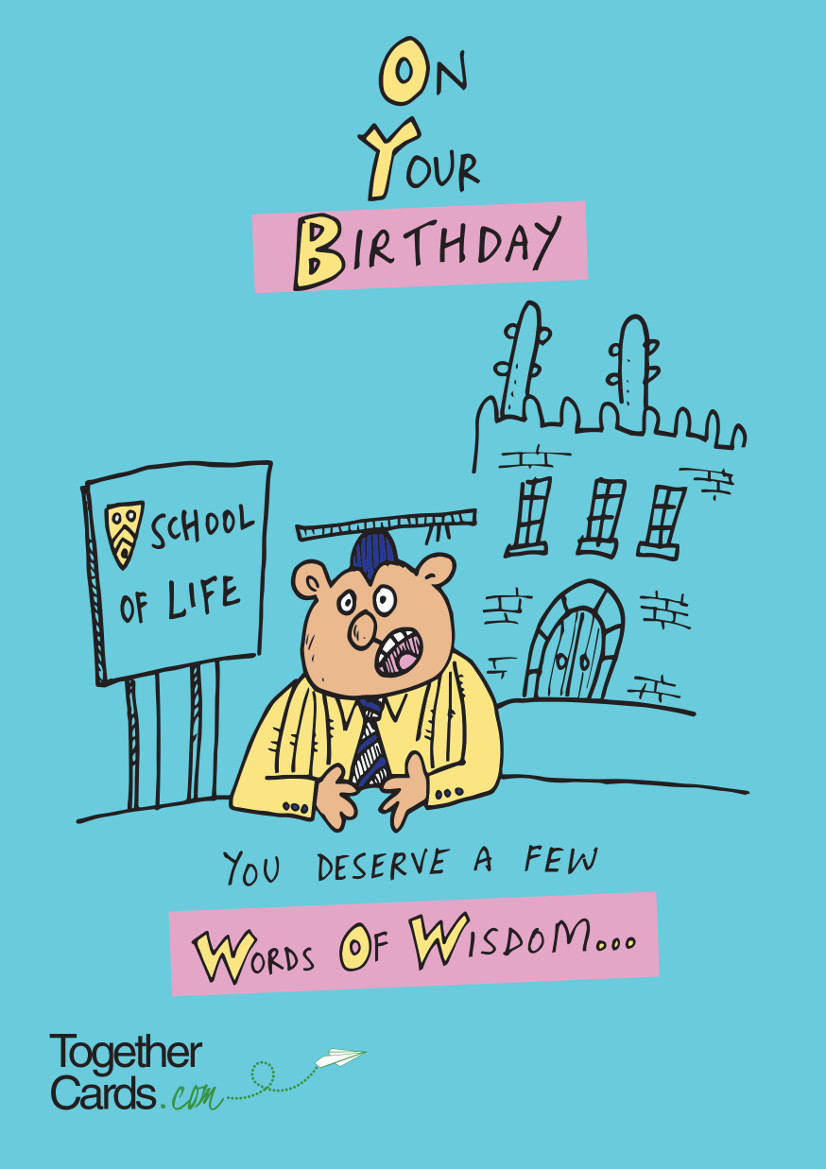 ON
YOUR
BIRTHDAY
SCHOOL
OF LIFE
YOU DESERVE A FEW
WORDS OF WISDOM...
Together
Cards.com